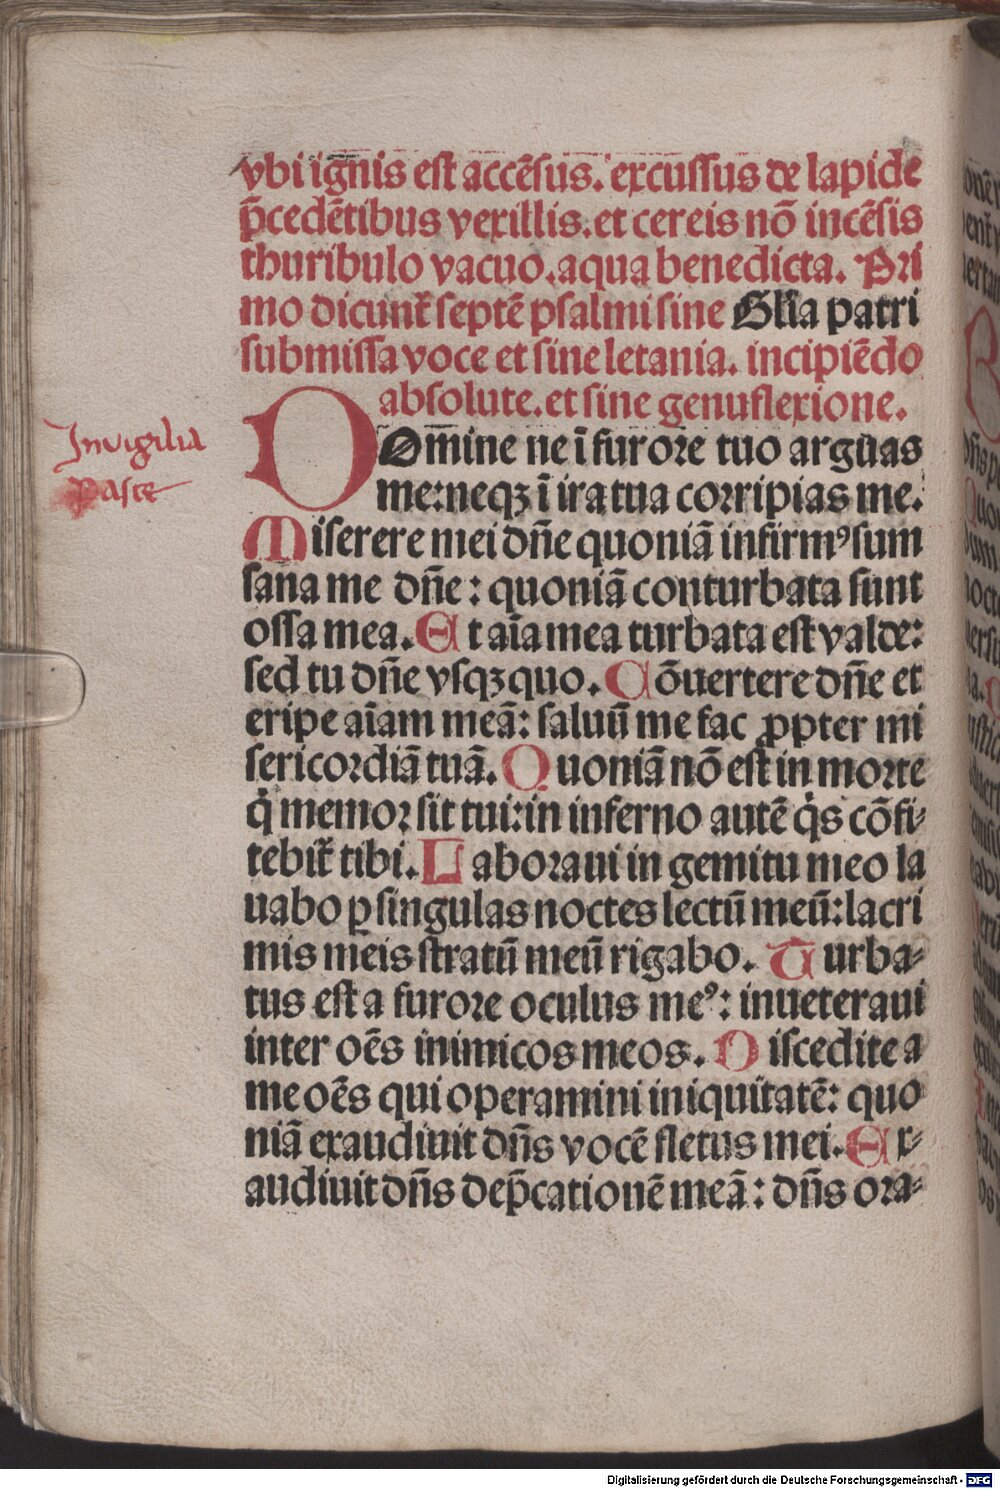 vbi ignis est accēsus. excussus de lapide
p̄cedētibus vexillis. et cereis nō incēsis
thuribulo vacuo. aqua benedicta. Pri
mo dicunt̄ septē psalmi sine Gl̄ia patri
submissa voce et sine letania. incipiēdo
absolute. et sine genuflexione.
In vigilia
pasce
DOmine ne ī furore tuo arguas
me: neqꝫ ī ira tua corripias me.
Miserere mei dn̄e quoniā infirmꝰ sum
sana me dn̄e : quoniā conturbata sunt
ossa mea. Et aīa mea turbata est valde:
sed tu dn̄e vsqꝫ quo. Cōuertere dn̄e et
eripe aīam meā: saluū me fac ꝓpter mi
sericordiā tuā. Quoniā nō est in morte
q̇ memor sit tui: in inferno autē q̇s cōfi-
tebit̄ tibi. Laboraui in gemitu meo la
uabo ꝑ singulas noctes lectū meū: lacri
mis meis stratū meū rigabo. Turba-
tus est a furore oculus meꝰ: inueteraui
inter oēs inimicos meos. Discedite a
me oēs qui operamini iniquitatē: quo
niā exaudiuit dn̄s vocē fletus mei. Ex-
audiuit dn̄s dep̄cationē meā: dn̄s ora-
Digitalisierung gefördert durch die Deutsche Forschungsgemeinschaft - DFG